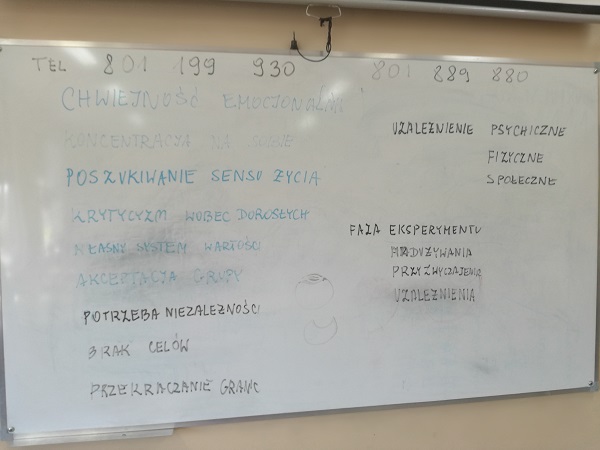 TEL 801 199 930 801 889 880
CHWIEJNOŚĆ EMOCJONALNA
KONCENTRACJA NA SOBIE
POSZUKIWANIE SENSU ŻYCIA
KRYTYCYZM WOBEC DOROSŁYCH
WŁASNY SYSTEM WARTOŚCI
AKCEPTACJA GRUPY
POTRZEBA NIEZALEŻNOŚCI
BRAK CELÓW
PRZEKRACZANIE GRANIC
UZALEŻNIENIE PSYCHICZNE
FIZYCZNE
SPOŁECZNE
FAZA EKSPERYMENTU
NADUŻYWANIA
PRZYZWYCZAJENIA
UZALEŻNIENIA